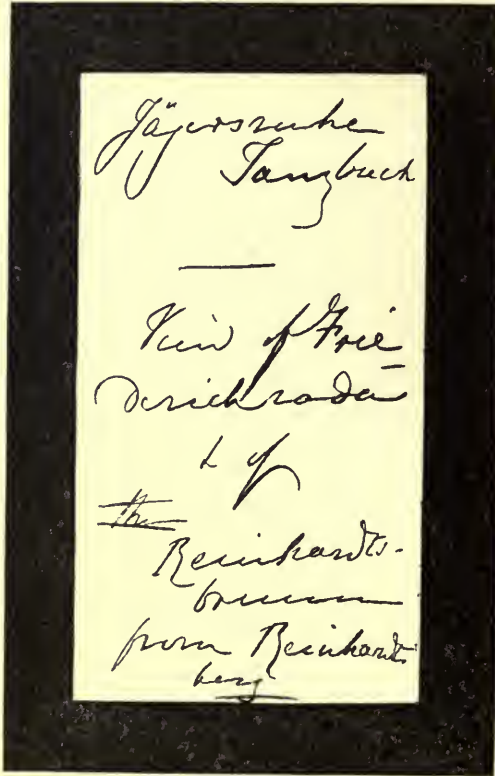 Jägersruhe
Tanzbuch
—
View of Frie-
derichroda
& of
the
Reinhardts-
brunn
from Reinhardts
berg